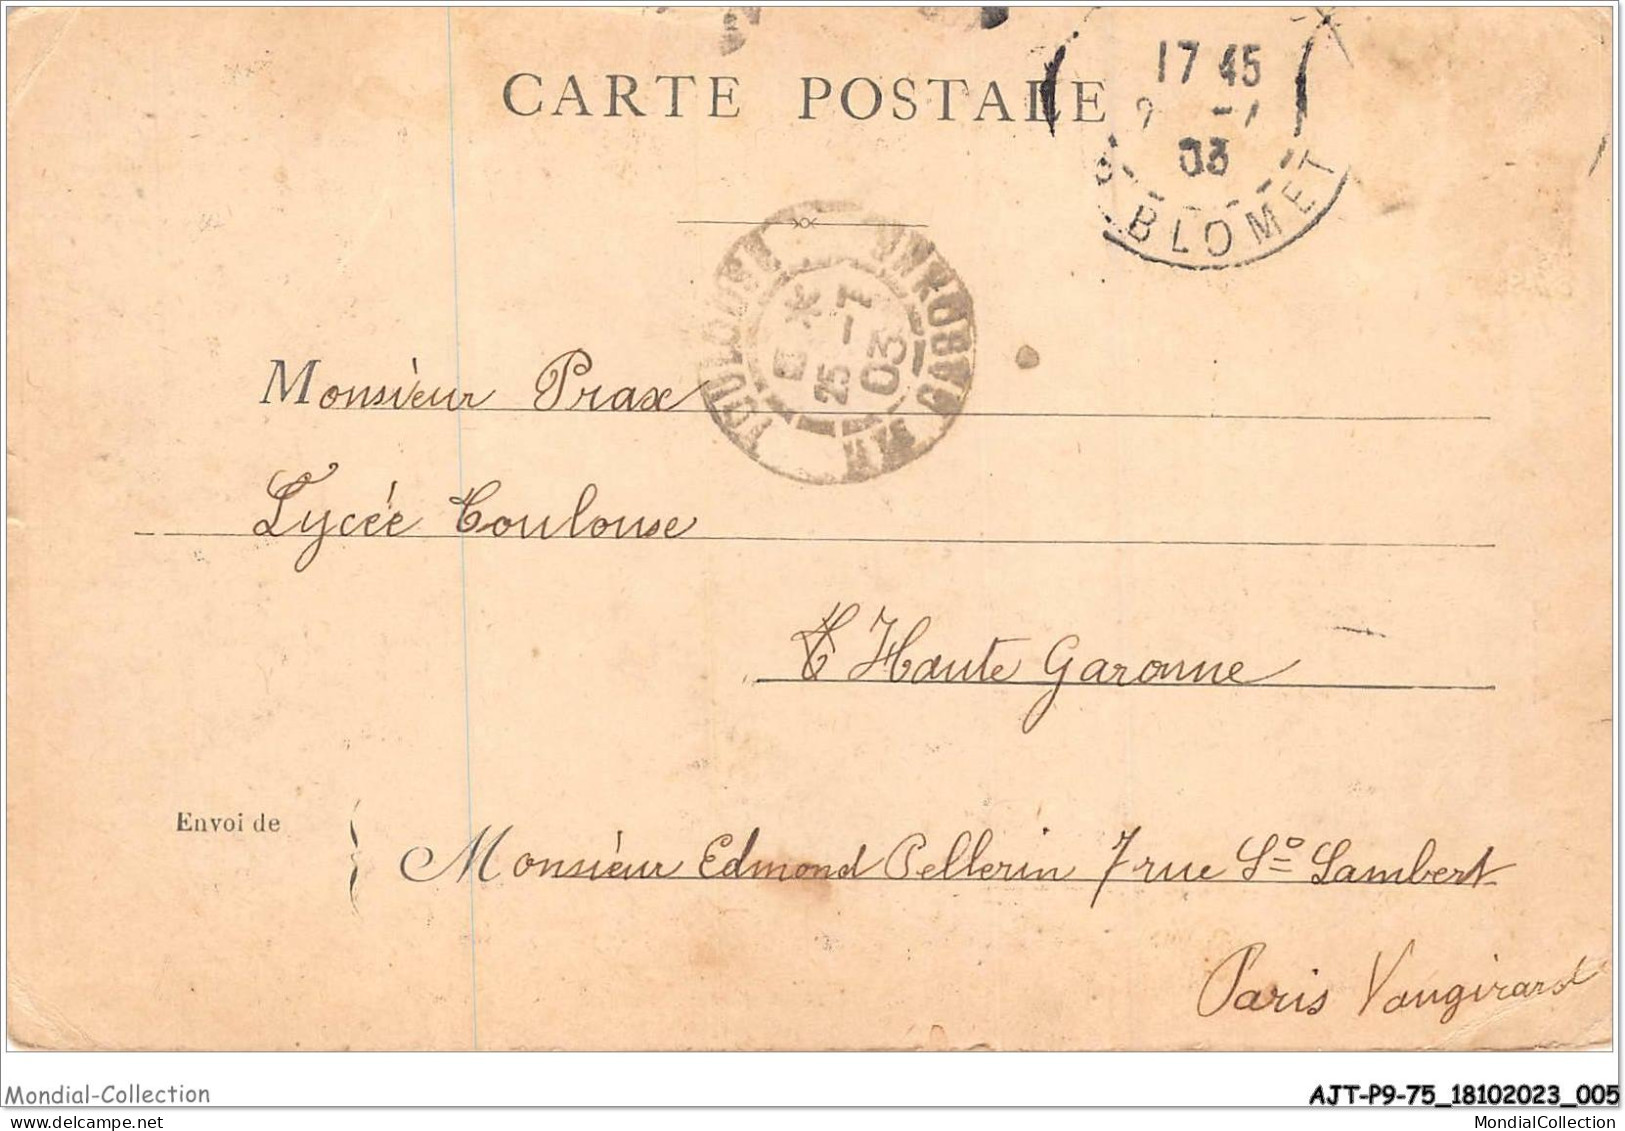 CARTE POSTALE
17 45
03
BLOMET
TOULOUSE
25 - 7
03
Monsieur Prax
Lycée Toulouse
Haute Garonne
Envoi de
Monsieur Edmond Pellerin 7 rue St Lambert
Paris Vaugirard
Mondial-Collection
AJT-P9-75_18102023_005
MondialCollection